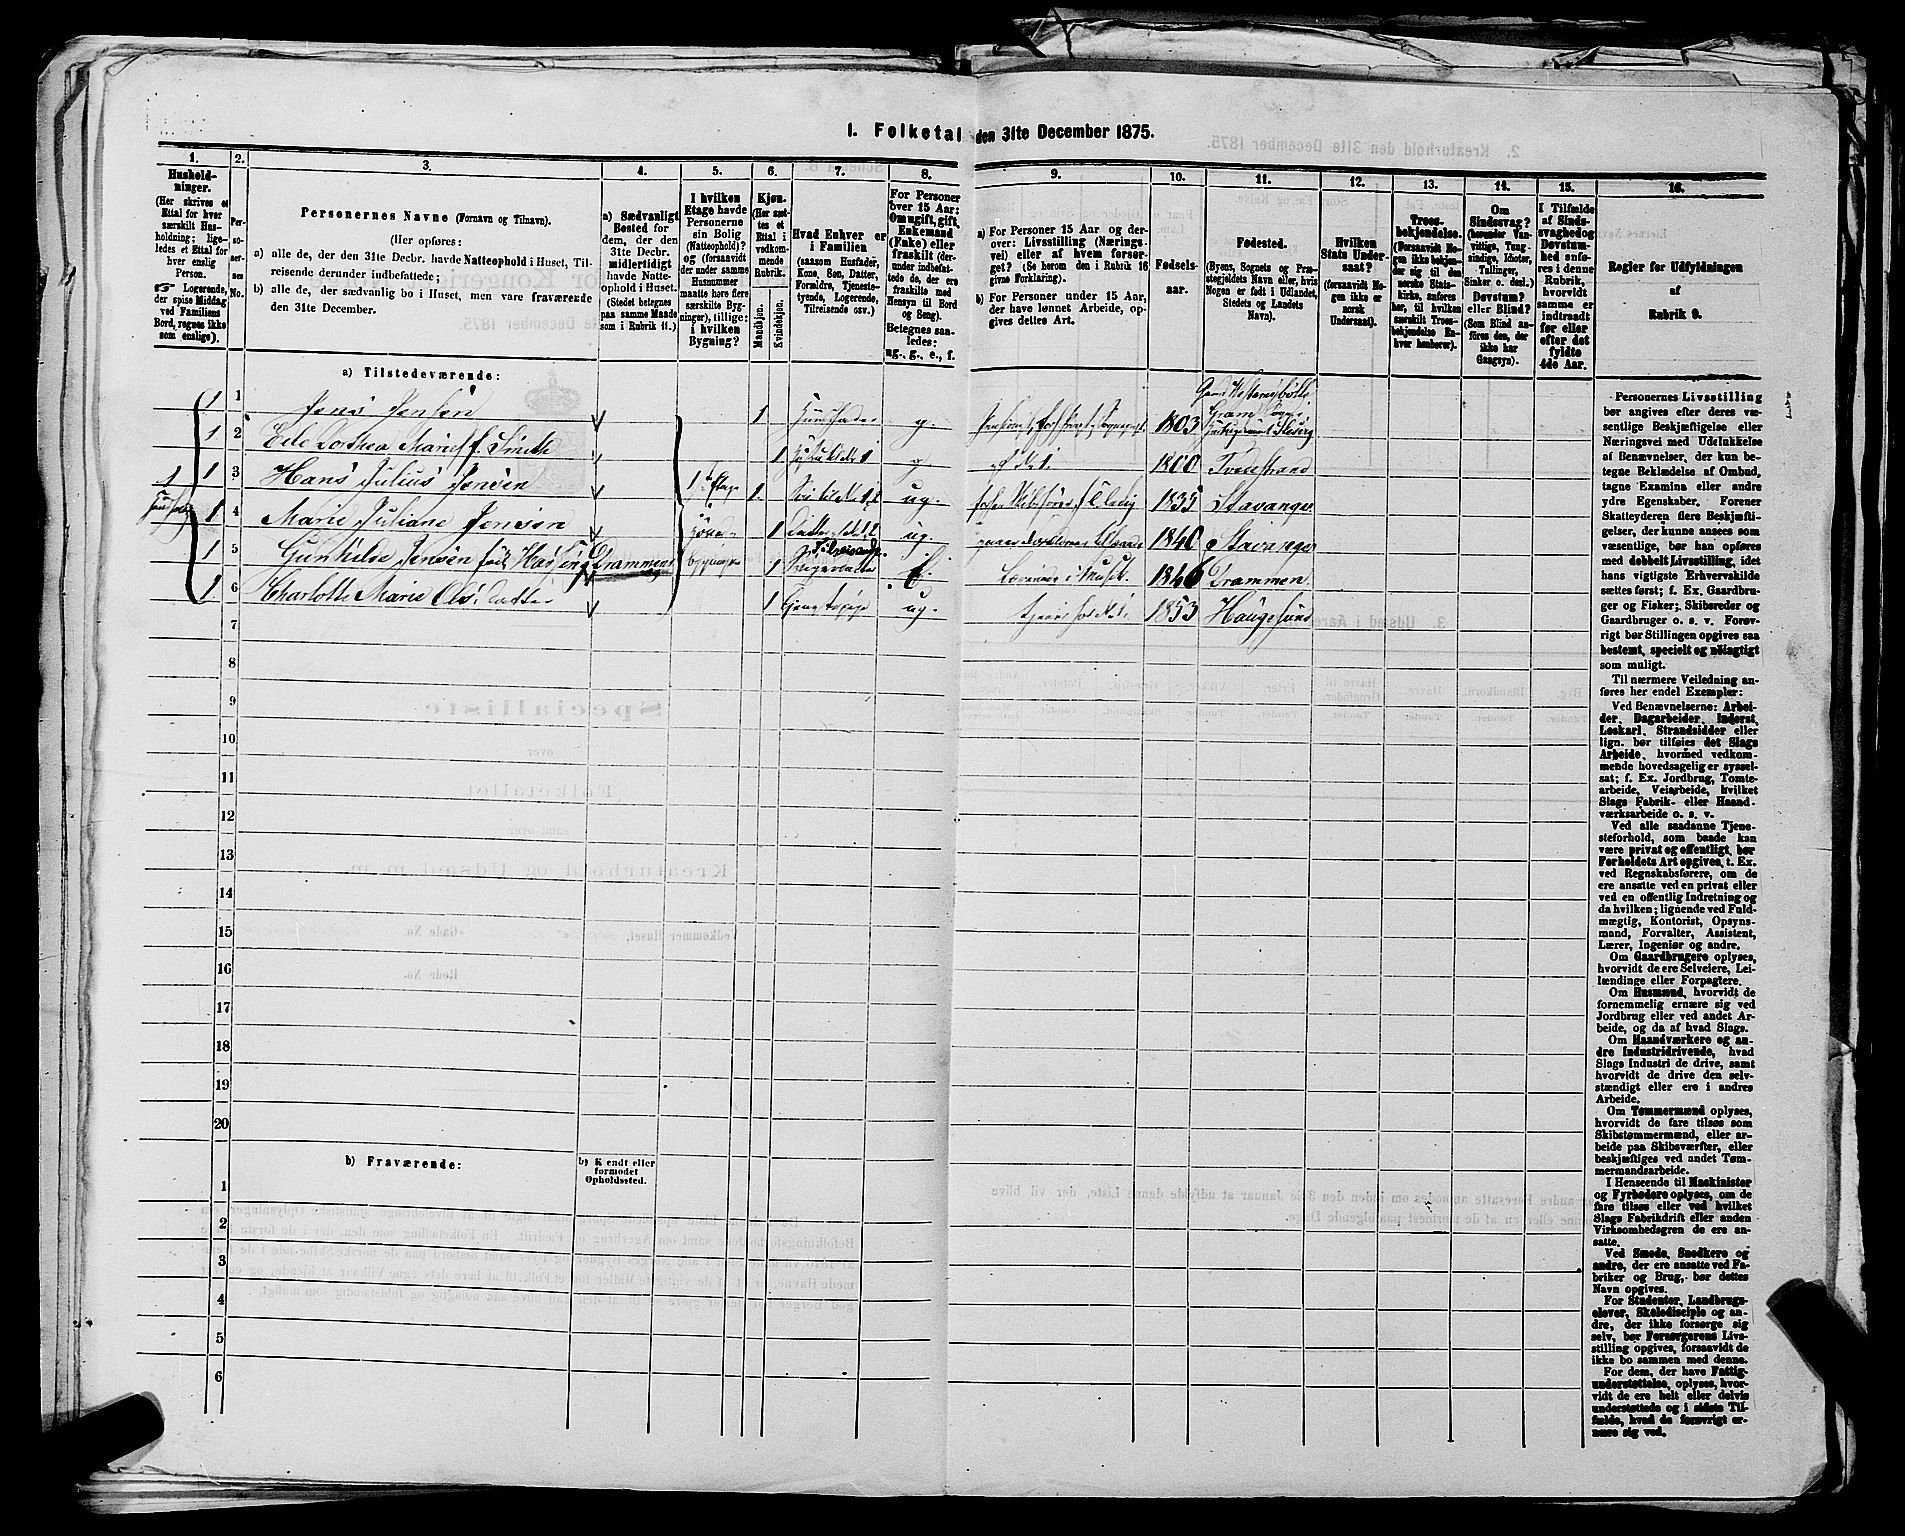 1. Folketal den 31te December 1875.
1. 2. 3. 4. 5. 6. 7. 8. 9. 10. 11. 12. 13. 14. 15. 16.
Hushold-
ninger.
(Her skrives et
Ettal for hver
særskilt Hus-
holdning; lige-
ledes et Ettal for
hver enslig
Person.
Logerende,
der spise Middag
ved Familiens
Bord, regnes ikke
som enslige).
Per-
so-
ner-
nes
No.
Personernes Navne (Fornavn og Tilnavn).
(Her opføres:
a) alle de, der den 31te Decbr. havde Natteophold i Huset, Til-
reisende derunder indbefattede;
b) alle de, der sædvanlig bo i Huset, men vare fraværende
den 31te December.
a) Sædvanligt
Bosted for
dem, der den
31te Decbr.
midlertidigt
havde Natte-
ophold i Huset.
(Stedet betegnes
paa samme Maade
som i Rubrik 11.)
I hvilken
Etage havde
Personerne
sin Bolig
(Natteophold)?
og (forsaavidt
der under samme
Husnummer
maatte høre flere
særskilte Byg-
ninger), tillige:
i hvilken
Bygning?
Kjøn.
(Her sæt-
tes et
Ettal i
vedkom-
mende
Rubrik.
Mandkjøn.
Kvindekjøn.
Hvad Enhver er
i Familien
(saasom Husfader,
Kone, Søn, Datter,
Forældre, Tjeneste-
tyende, Logerende,
Tilreisende osv.)
For Personer
over 15 Aar:
Om ugift, gift,
Enkemand
(Enke) eller
fraskilt (der-
under indbefat-
tede de, der ere
fraskilte med
Hensyn til Bord
og Seng).
Betegnes saa-
ledes:
ug., g., e., f.
a) For Personer 15 Aar og der-
over: Livsstilling (Nærings-
vei) eller af hvem forsør-
get? (Se herom den i Rubrik 16
givne Forklaring).
b) For Personer under 15 Aar,
der have lønnet Arbeide, op-
gives dettes Art.
Fødsels-
aar.
Fødested.
(Byens, Sognets og Præ-
stegjeldets Navn eller, hvis
Nogen er født i Udlandet,
Stedets og Landets
Navn).
Hvilken
Stats Under-
saat?
(forsaavidt No-
gen ikke er
norsk
Undersaat).
Troes-
bekjendelse.
(Forsaavidt No-
gen ikke bekjen-
der sig til den
norske Stats-
kirke, anføres
her, til hvilken
særskilt Troes-
bekjendelse En-
hver henhører).
Om
Sindssvag?
(herunder Van-
vittige, Tung-
sindige, Idioter,
Tullinger,
Sinker o. desl.)
Døvstum?
eller Blind?
(Som Blind an-
føres den, der
ikke har
Gangsyn).
I Tilfælde
af Sinds-
svaghed og
Døvstum-
hed anfø-
res i denne
Rubrik,
hvorvidt
samme er
indtraadt
før eller
efter det
fyldte
4de Aar.
Regler for Udfyldningen
af
Rubrik 9.
a) Tilstedeværende:
1 1 Jens Jensen 1 Husfader g. 1803
1 2 Ede Lothea Marie f. Smith 1 g. 1800 Tvedestrand
1 1 3 Hans Julius Jensen 1 Etage 1. ug. 1835 Stavanger
1 4 Marie Juliane Jensen 1 ug. 1840 Stavanger
1 5 Gunhilde Jensen født Hassing Drammen 1 f. Lærerinde i Musik. 1846 Drammen
1 6 Charlotte Marie Olsdatter 1 ug. 1853 Haugesund
7
8
9
10
11
12
13
14
15
16
17
18
19
20
b) Fraværende:
b) Kjendt eller
formodet
Opholdssted.
1
2
3
4
5
6
Personernes Livsstilling
bør angives efter deres væ-
sentlige Beskjæftigelse eller
Næringsvei med Udelukkelse
af Benævnelser, der kun be-
tegne Beklædelse af Ombud,
tagne Examina eller andre
ydre Egenskaber. Forener
Skatteyderen flere Beskjæfti-
gelser, der kunne ansees som
væsentlige, bør han opføres
med dobbelt Livsstilling, idet
hans vigtigste Erhvervskilde
sættes først; f. Ex. Gaardbru-
ger og Fisker; Skibsreder og
Gaardbruger o. s. v. Forøv-
rigt bør Stillingen opgives saa
bestemt, specielt og nøiagtigt
som muligt.
Til nærmere Veiledning an-
føres her endel Exempler:
Ved Benævnelserne: Arbei-
der, Dagarbeider, Inderst,
Løskarl, Strandsidder eller
lign. bør tilføies det Slags
Arbeide, hvormed vedkom-
mende hovedsagelig er syssel-
sat; f. Ex. Jordbrug, Tomte-
arbeide, Veiarbeide, hvilket
Slags Fabrik- eller Haand-
værksarbeide o. s. v.
Ved alle saadanne Tjene-
steforhold, som baade kan
være privat og offentligt, bør
Forholdets Art opgives, t. Ex.
ved Regnskabsførere, om de
ere ansatte ved en privat eller
ved en offentlig Indretning og
da hvilken; lignende ved Fuld-
mægtig, Kontorist, Opsyns-
mand, Forvalter, Assistent,
Lærer, Ingeniør og andre.
Om Gaardbrugere oplyses,
hvorvidt de ere Selveiere, Lei-
lændinge eller Forpagtere.
Om Husmænd, hvorvidt de
fornemmelig ernære sig ved
Jordbrug eller ved andet Ar-
beide, og da af hvad Slags.
Om Haandværkere og an-
dre Industridrivende, hvad
Slags Industri de drive, samt
hvorvidt de drive den selv-
stændigt eller ere i andres
Arbeide.
Om Tømmermænd oplyses,
hvorvidt de fare tilsøs som
Skibstømmermænd, eller ar-
beide paa Skibsværfter, eller
beskjæftiges ved andet Tøm-
mermandsarbeide.
I Henseende til Maskinister
og Fyrbødere oplyses, om de
fare tilsøs eller ved hvilket
Slags Fabrikdrift eller anden
Virksomhedsgren de ere an-
satte.
Ved Smede, Snedkere og
andre, der ere ansatte ved Fa-
briker og Brug, bør dettes
Navn opgives.
For Studenter, Landbrugs-
elever, Skoledisciple og an-
dre, der ikke forsørge sig
selv, bør Forsørgerens Livs-
stilling opgives, forsaavidt de
ikke bo sammen med denne.
For dem, der have Fattig-
understøttelse, oplyses, hvor-
vidt de ere helt eller delvis
understøttede og i sidste Til-
fælde, hvad de forøvrigt er-
nære sig ved.